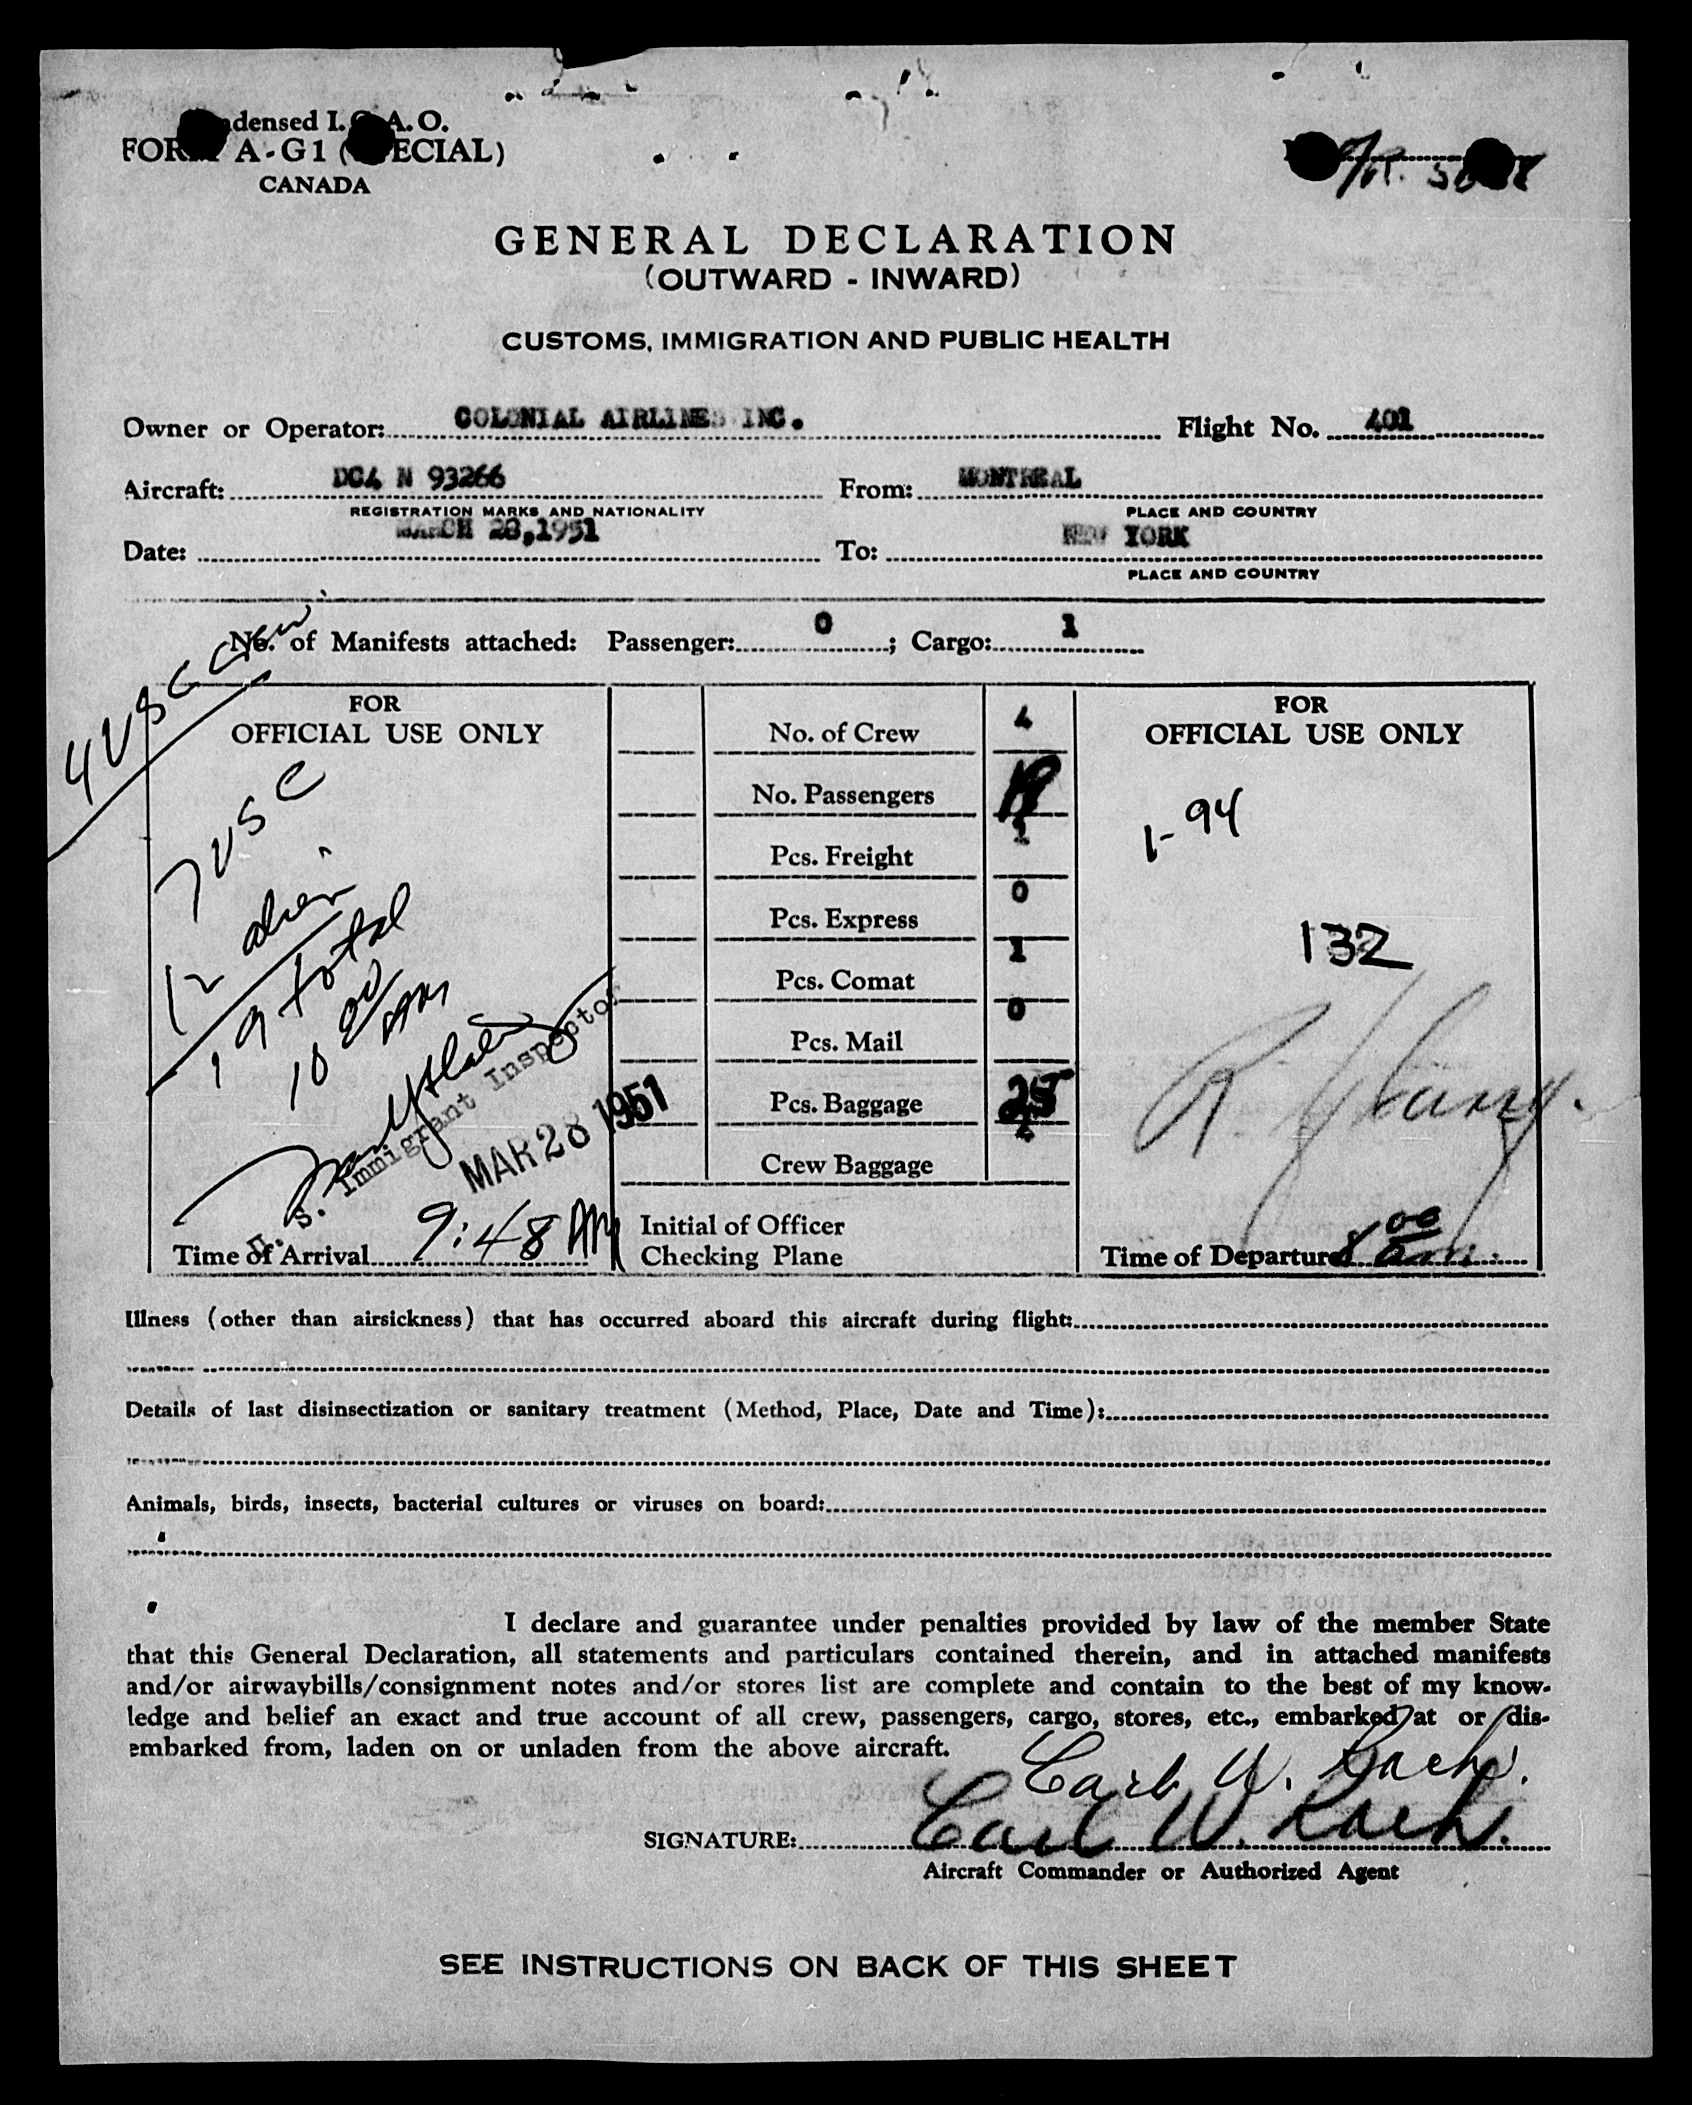 Condensed I.C.A.O.
FORM A-G1 (SPECIAL)
CANADA
GENERAL DECLARATION
(OUTWARD - INWARD)
CUSTOMS, IMMIGRATION AND PUBLIC HEALTH
Owner or Operator: COLONIAL AIRLINES INC. Flight No. 401
Aircraft: DC4 N 93266 From: MONTREAL
REGISTRATION MARKS AND NATIONALITY PLACE AND COUNTRY
Date: MARCH 28,1951 To: NEW YORK
PLACE AND COUNTRY
No. of Manifests attached: Passenger: 0 ; Cargo: 1
4 USC Crew
FOR
OFFICIAL USE ONLY
7 USC
12 alien
19 total
10 00 AM
U.S. Immigrant Inspector
MAR 28 1951
Time of Arrival 9:48 AM
No. of Crew 4
No. Passengers 19
Pcs. Freight 1
Pcs. Express 0
Pcs. Comat 1
Pcs. Mail 0
Pcs. Baggage 25
Crew Baggage 2
Initial of Officer
Checking Plane
FOR
OFFICIAL USE ONLY
1-94
132
Time of Departure 8 00 am
Illness (other than airsickness) that has occurred aboard this aircraft during flight:
Details of last disinsectization or sanitary treatment (Method, Place, Date and Time):
Animals, birds, insects, bacterial cultures or viruses on board:
I declare and guarantee under penalties provided by law of the member State
that this General Declaration, all statements and particulars contained therein, and in attached manifests
and/or airwaybills/consignment notes and/or stores list are complete and contain to the best of my know-
ledge and belief an exact and true account of all crew, passengers, cargo, stores, etc., embarked at or dis-
embarked from, laden on or unladen from the above aircraft.
Carl W. Rach.
SIGNATURE: Carl W. Rach.
Aircraft Commander or Authorized Agent
SEE INSTRUCTIONS ON BACK OF THIS SHEET